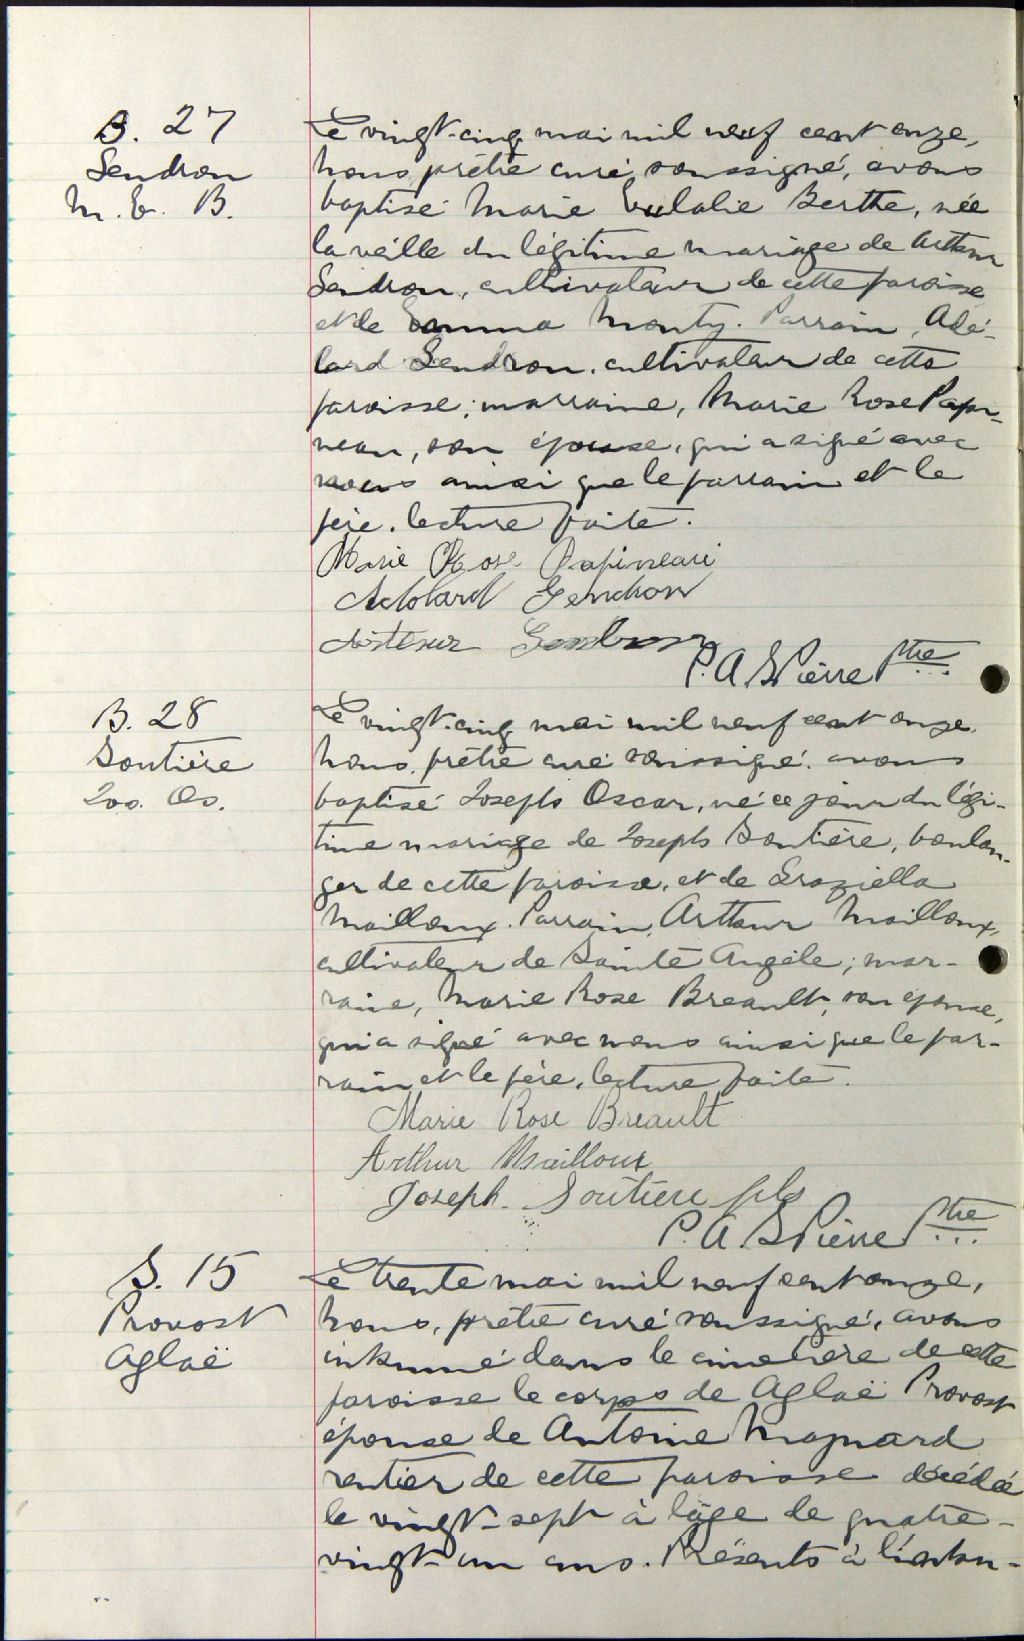 B. 27
Gendron
M. E. B.
Le vingt-cinq mai mil neuf cent onze,
nous, prêtre curé, soussigné, avons
baptisé Marie Eulalie Berthe, née
la veille du légitime mariage de Arthur
Gendron, cultivateur de cette paroisse
et de Emma Monty. Parrain, Adé-
lard Gendron, cultivateur de cette
paroisse; marraine, Marie Rose Papi-
neau, son épouse, qui a signé avec
nous ainsi que le parrain et le
père. lecture faite.
Marie Rose Papineau
Adelard Gendron
Arthur Gendron
P. A. St Pierre Ptre
B. 28
Soutière
Jos. Os.
Le vingt-cinq mai mil neuf cent onze,
nous, prêtre curé soussigné, avons
baptisé Joseph Oscar, né ce jour du légi-
time mariage de Joseph Soutière, boulan-
ger de cette paroisse, et de Graziella
Mailloux. Parrain, Arthur Mailloux,
cultivateur de Sainte Angèle; mar-
raine, Marie Rose Breault, son épouse,
qui a signé avec nous ainsi que le par-
rain et le père. lecture faite.
Marie Rose Breault
Arthur Mailloux
Joseph Soutiere fils
P. A. St Pierre Ptre
S. 15
Provost
Aglaë
Le trente mai mil neuf cent onze,
nous, prêtre curé soussigné, avons
inhumé dans le cimetière de cette
paroisse le corps de Aglaë Provost
épouse de Antoine Maynard
rentier de cette paroisse décédée
le vingt-sept à l'âge de quatre-
vingt-un ans. Présents à l'inhu-